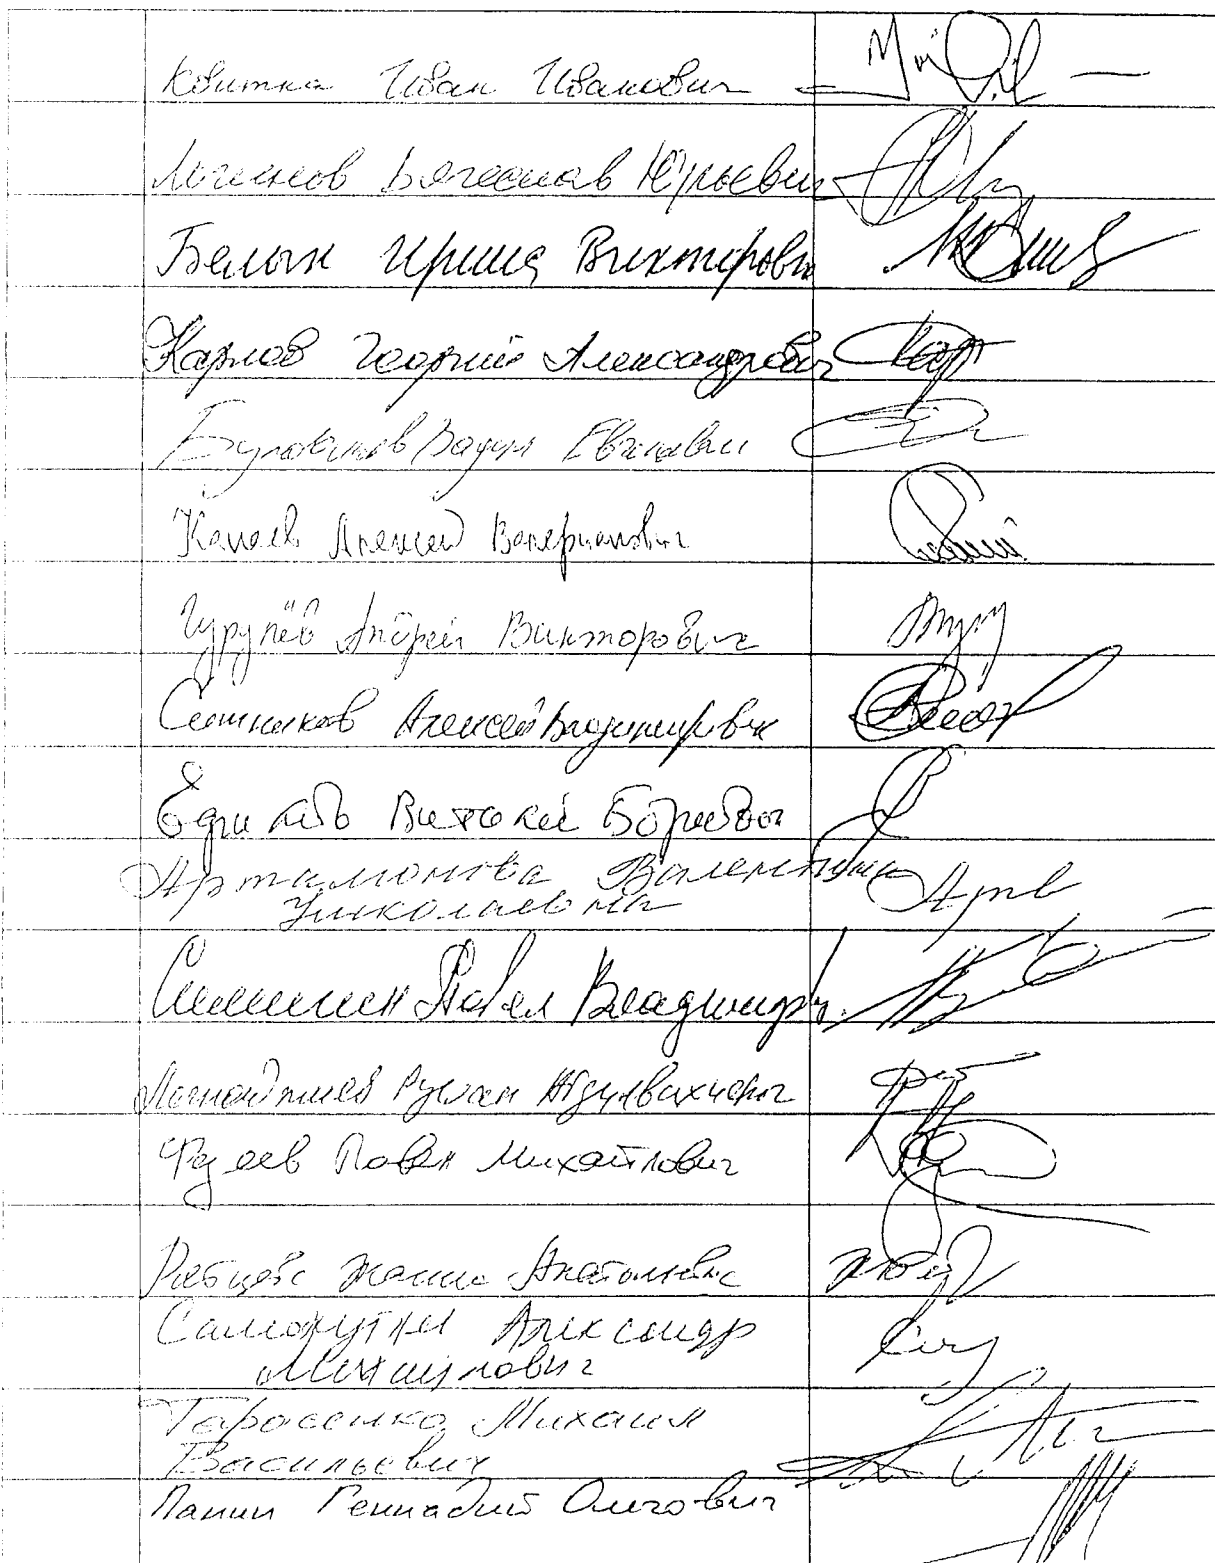 Квитка Иван Иванович
Логинов Вячеслав Юрьевич
Белых Ирина Викторовн
Карлов Георгий Александрович
Вадим Евгеневич
Канаев Алексей Валерианович
Гурулёв Андрей Викторович
Ситников Алексей Владимирович
Виталий Борисович
Артамонова Валентина
Николаевна
Симигин Павел Владимир.
Руслан Абдулвахидович
Федяев Павел Михайлович
Рябцева Жанна Анатольевна
Самокутяев Александр
Михайлович
Тарасенко Михаил
Васильевич
Панин Геннадий Олегович